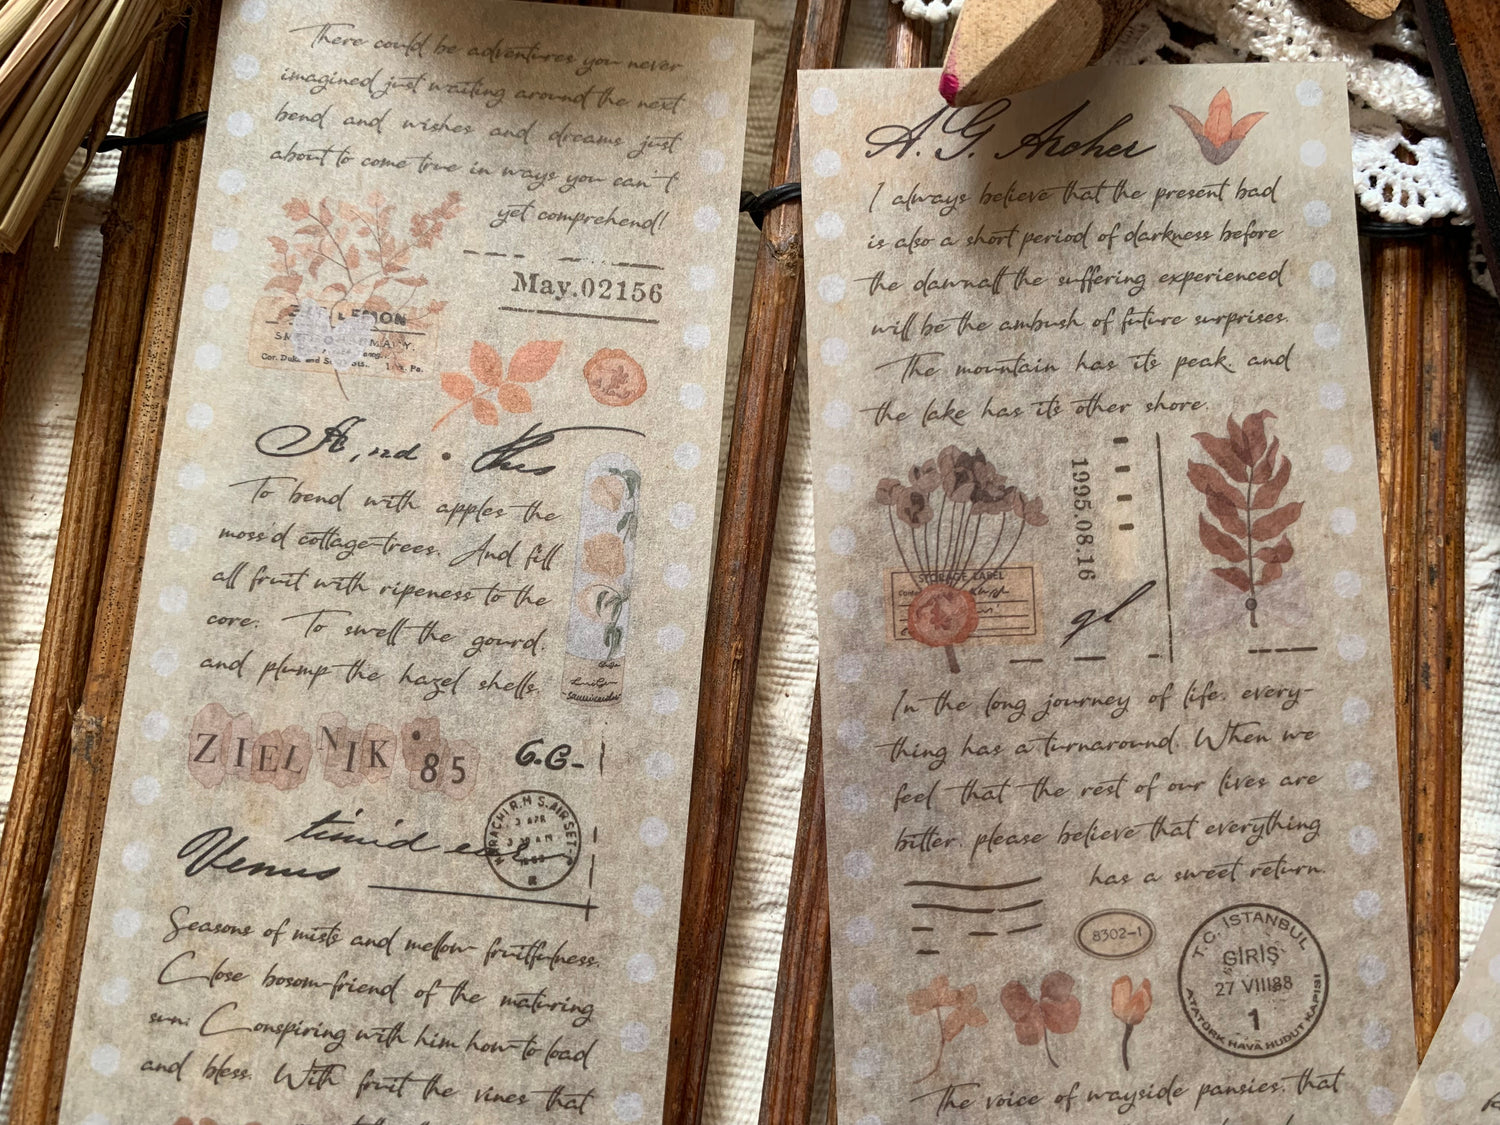 There could be adventures you never
imagined just waiting around the next
bend and wishes and dreams just
about to come true in ways you can't
yet comprehend!
May.02156
Cor. Duke and
Pa.
A,nd • this
To bend with apples the
moss'd cottage-trees. And fill
all fruit with ripeness to the
core. To swell the gourd.
and plump the hazel shells.
ZIELNIK '85
G.G-
timid
Venus
R.H S.AIR SET-
3 APR
Seasons of mists and mellow fruitfulness.
Close bosom-friend of the maturing
sun; Conspiring with him how to load
and bless. With fruit the vines that
A. G. Archer
I always believe that the present bad
is also a short period of darkness before
the dawnall the suffering experienced
will be the ambush of future surprises.
The mountain has its peak, and
the lake has its other shore.
1995.08.16
STORAGE LABEL
gl
In the long journey of life, every-
thing has a turnaround. When we
feel that the rest of our lives are
bitter, please believe that everything
has a sweet return.
8302-1
T.C. İSTANBUL
GİRİŞ
27 VIII88
1
ATATÜRK HAVA HUDUT KAPISI
The voice of wayside pansies, that